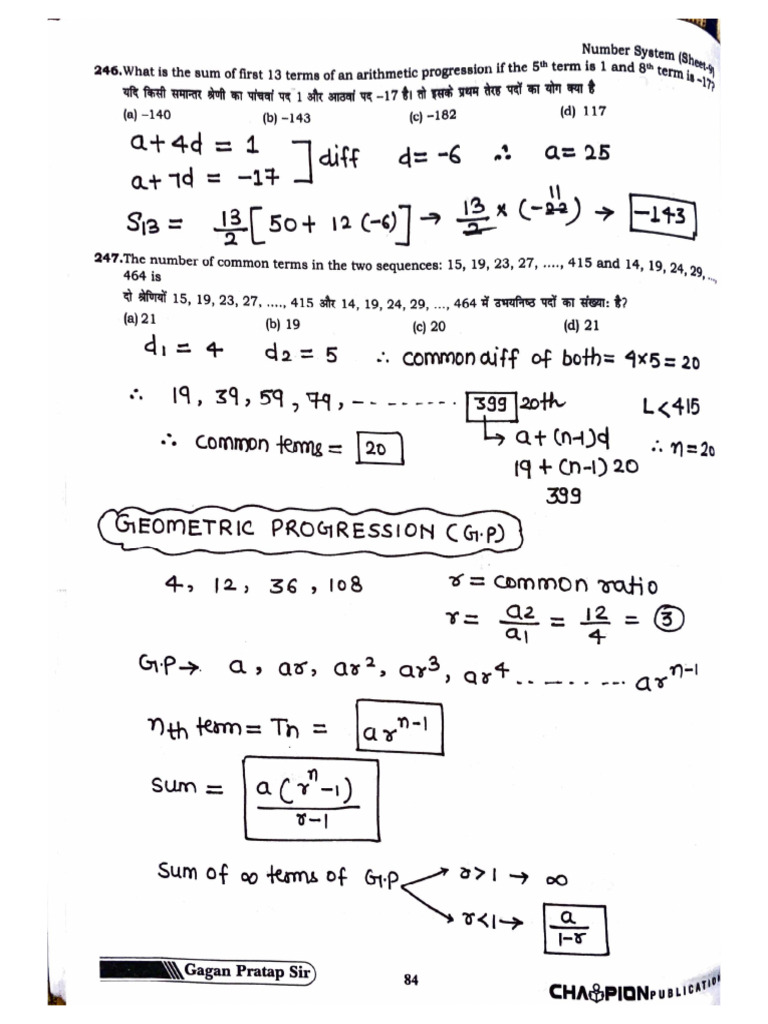 Number System (Sheet-9)
246.What is the sum of first 13 terms of an arithmetic progression if the 5th term is 1 and 8th term is -17?
यदि किसी समान्तर श्रेणी का पांचवा पद 1 और आठवां पद -17 है। तो इसके प्रथम तेरह पदों का योग क्या है
(a) -140 (b) -143 (c) -182 (d) 117
a+4d = 1
a+7d = -17 ] diff d = -6 ∴ a = 25
S13 = 13/2 [50 + 12 (-6)] → 13/2 × (-22) 11 → -143
247.The number of common terms in the two sequences: 15, 19, 23, 27, ...., 415 and 14, 19, 24, 29, ...,
464 is
दो श्रेणियों 15, 19, 23, 27, ...., 415 और 14, 19, 24, 29, ..., 464 में उभयनिष्ठ पदों का संख्याः है?
(a) 21 (b) 19 (c) 20 (d) 21
d1 = 4 d2 = 5 ∴ common diff of both = 4×5 = 20
∴ 19, 39, 59, 79, - - - - - - - - - 399 20th L<415
∴ common terms = 20 → a+(n-1)d ∴ n=20
19+(n-1)20
399
GEOMETRIC PROGRESSION (G.P)
4, 12, 36, 108 r = common ratio
r = a2/a1 = 12/4 = 3
G.P → a, ar, ar², ar³, ar⁴ . . - . . - . . . . ar^n-1
nth term = Tn = ar^n-1
Sum = a(r^n-1)/r-1
Sum of ∞ terms of G.P r>1 → ∞
r<1 → a/1-r
Gagan Pratap Sir
84
CHAMPION PUBLICATION